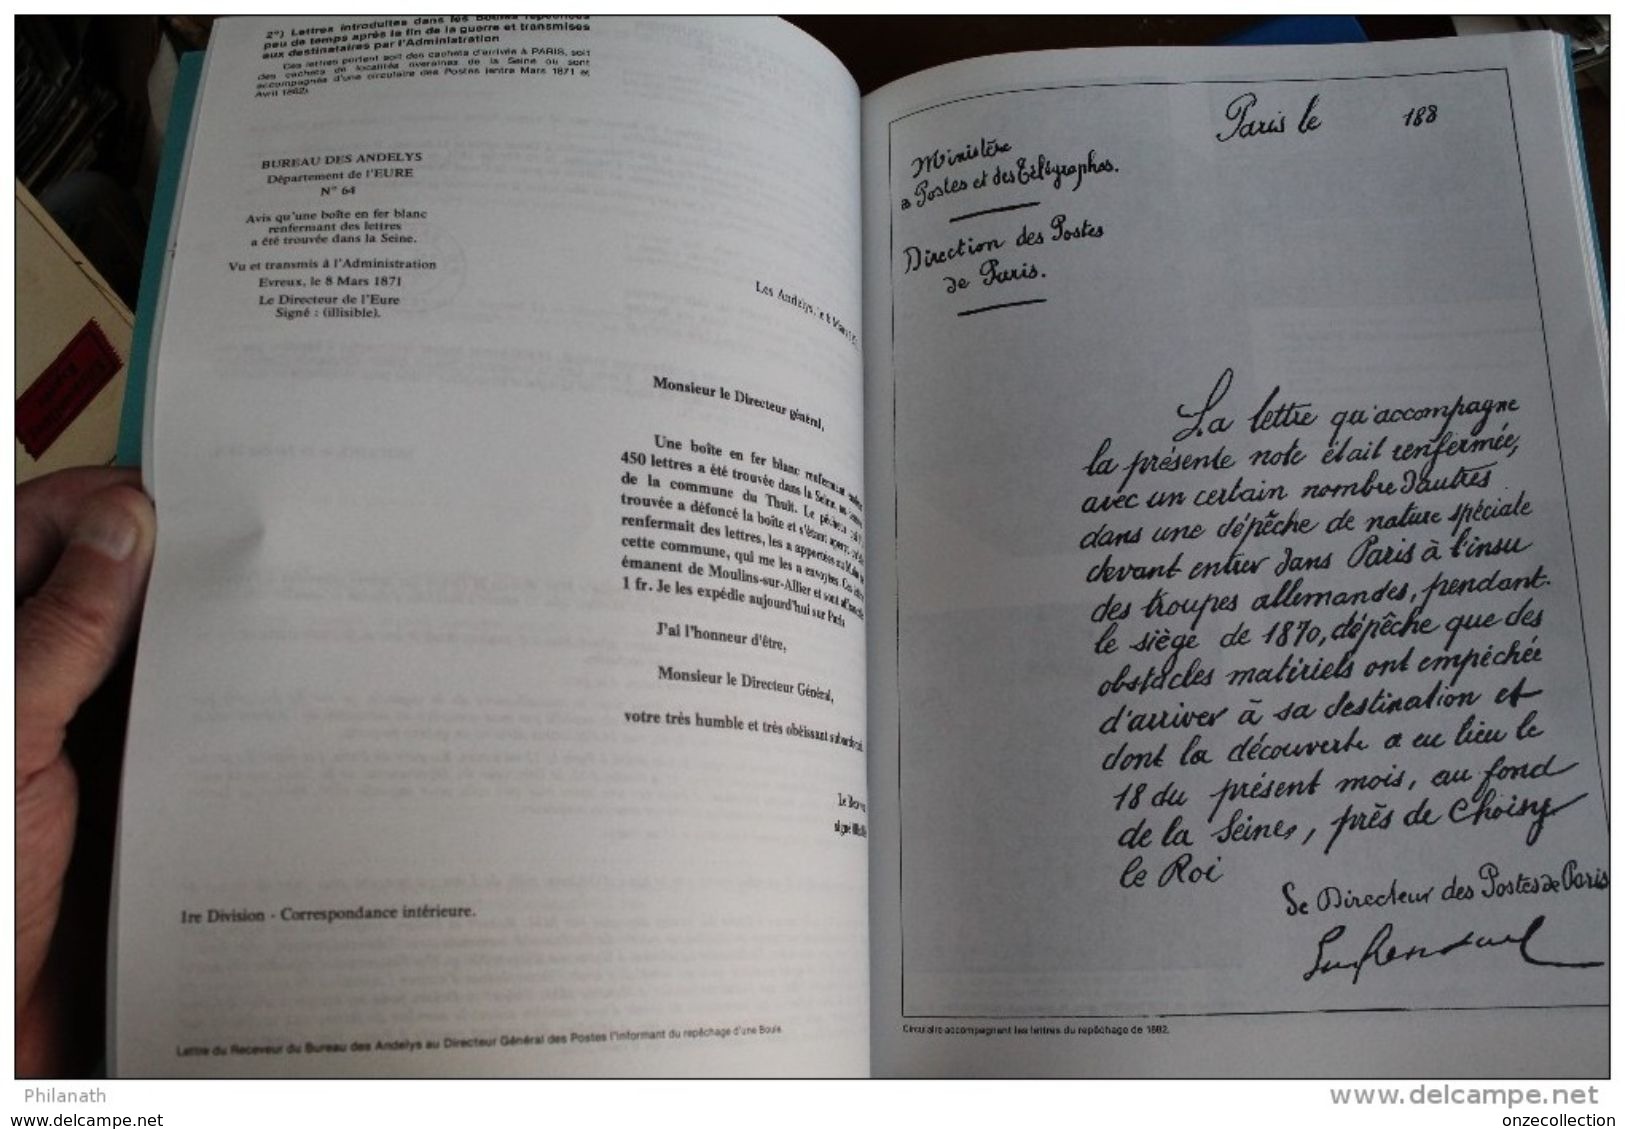 2°) Lettres introduites dans les Boules repêchées
peu de temps après la fin de la guerre et transmises
aux destinataires par l'Administration
Ces lettres portent soit des cachets d'arrivée à PARIS, soit
des cachets de localités riveraines de la Seine ou sont
accompagnés d'une circulaire des Postes (entre Mars 1871 et
Avril 1882).
BUREAU DES ANDELYS
Département de l'EURE
N° 64
Avis qu'une boîte en fer blanc
renfermant des lettres
a été trouvée dans la Seine.
Vu et transmis à l'Administration
Evreux, le 8 Mars 1871
Le Directeur de l'Eure
Signé : (illisible).
Les Andelys, le 8 Mars
Monsieur le Directeur général,
Une boîte en fer blanc renfermant
450 lettres a été trouvée dans la Seine, au
de la commune du Thuit. Le pêcheur qui l'a
trouvée a défoncé la boîte et s'étant aperçu
renfermait des lettres, les a apportées au Maire de
cette commune, qui me les a envoyées. Ces
émanent de Moulins-sur-Allier et sont affranchies
1 fr. Je les expédie aujourd'hui sur Paris
J'ai l'honneur d'être,
Monsieur le Directeur Général,
votre très humble et très obéissant subordonné.
Le
signé
1re Division - Correspondance intérieure.
Lettre du Receveur du Bureau des Andelys au Directeur Général des Postes l'informant du repêchage d'une Boule.
Paris le 188
Ministère
s Postes et des Télégraphes.
Direction des Postes
de Paris.
La lettre qu'accompagne
la présente note était renfermée,
avec un certain nombre d'autres
dans une dépêche de nature spéciale
devant entrer dans Paris à l'insu
des troupes allemandes, pendant
le siège de 1870, dépêche que des
obstacles matériels ont empêché
d'arriver à sa destination et
dont la découverte a eu lieu le
18 du présent mois, au fond
de la Seine, près de Choisy
le Roi
Le Directeur des Postes de Paris
Circulaire accompagnant les lettres du repêchage de 1882.
Philanath
www.delcampe.net
my name is onzecollection
onzecollection